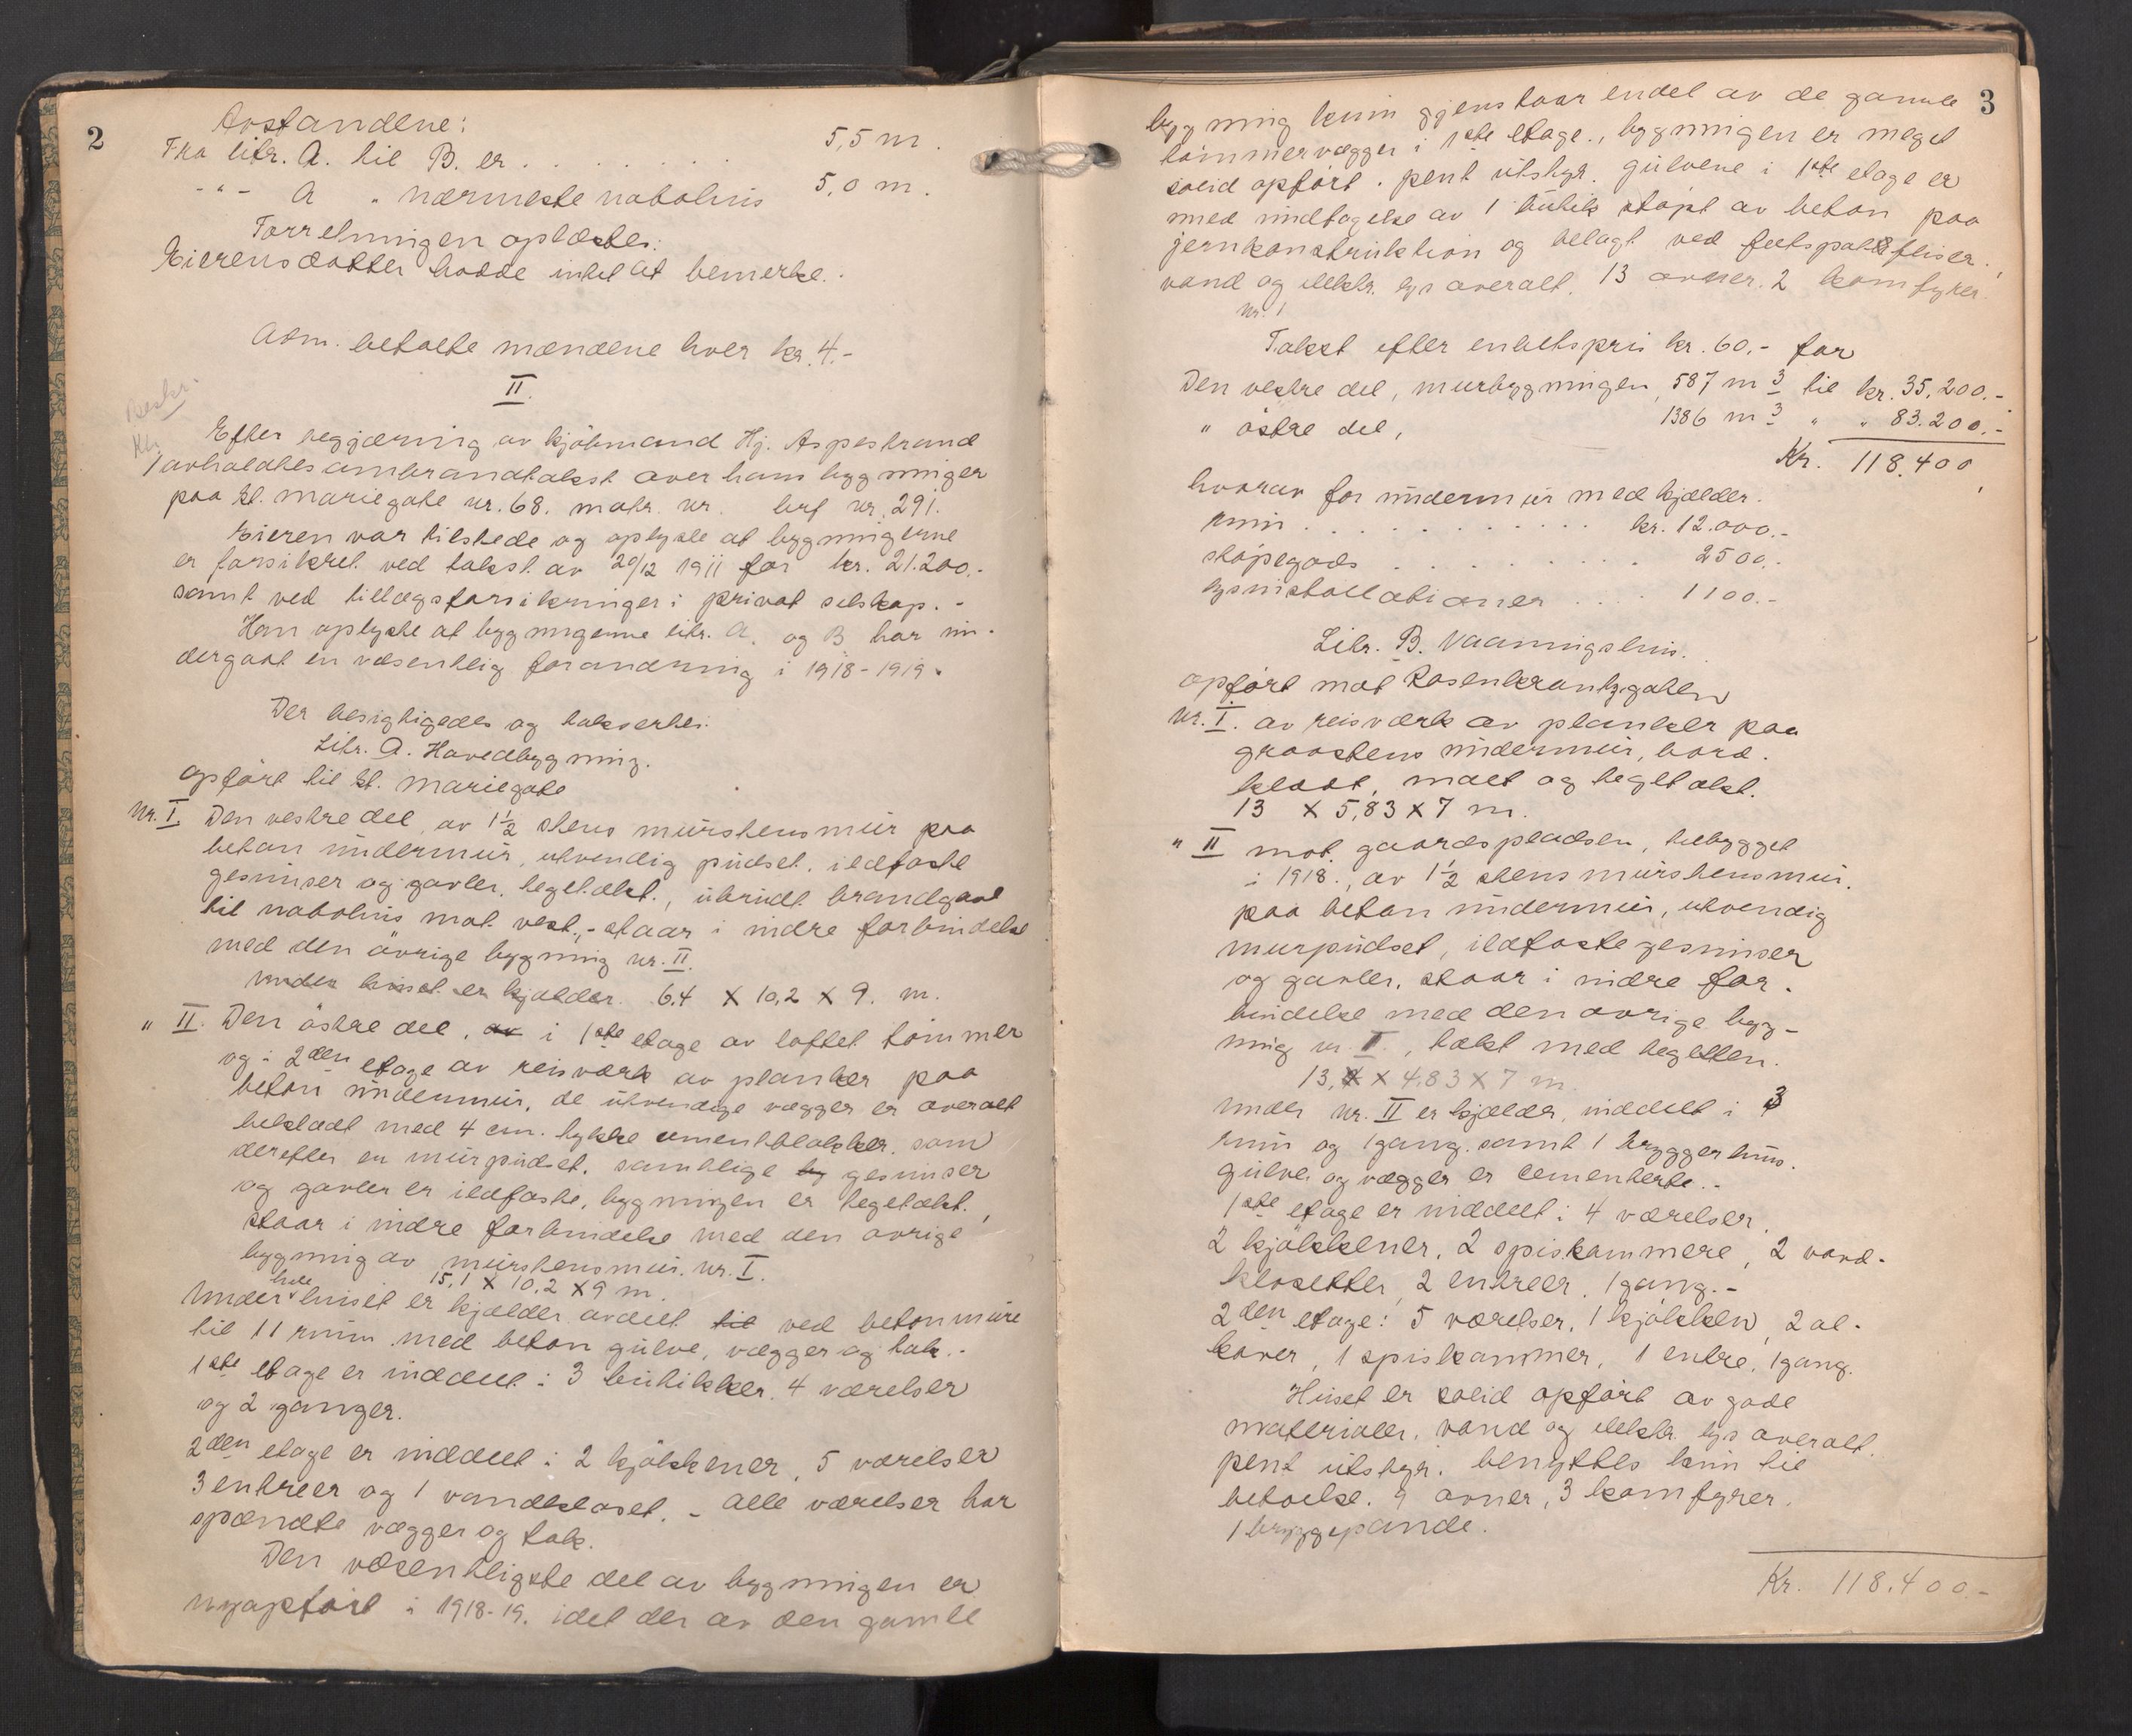 2
Avstandene:
Fra litr. A. til B. er . . . . . . . 5,5 m.
-"- A " nærmeste nabohus 5,0 m.
Forretningen oplæstes:
Eierens datter hadde intet at bemerke.
Adm. betalte mændene hver kr. 4.-
II.
Beskr.
Efter begjæring av kjöbmand Hj. Aspestrand
avholdtes ombrandtakst over hans bygninger
paa St. Mariegate nr. 68. matr. nr. brf nr. 291.
Eieren var tilstede og oplyste at bygningerne
er forsikret ved takst av 29/12 1911 for kr. 21.200.-
samt ved tillægsforsikringer i privat selskap.-
Han oplyste at bygningerne litr. A. og B har un-
dergaat en væsentlig forandring i 1918-1919.
Der besigtigedes og taksertes:
Litr. A. Hovedbygning.
opført til St. Mariegate
Nr. I. Den vestre del, av 1½ stens murstensmur paa
beton undermur, utvendig pudset, ildfaste
gesimser og gavler, tegltækt., ubrudt brandgavl
til nabohus mot vest.,- staar i indre forbindelse
med den övrige bygning nr. II.
Under huset er kjælder. 6,4 X 10,2 X 9. m.
" II. Den östre del, av i 1ste etage av loftet tömmer
og i 2den etage av reisværk av planker paa
beton undermur, de utvendige vægger er overalt
beklædt med 4 cm. tykke cementblokker, som
derefter er murpudset, samtlige by gesimser
og gavler er ildfaste, bygningen er tegltækt.,
staar i indre forbindelse med den øvrige
bygning av murstensmur. nr. I.
15,1 X 10,2 X 9 m.
Under hele huset er kjælder avdelt til ved betonmure
til 11 rum med beton gulve, vægger og tak.-
1ste etage er inddelt: 3 butikker, 4 værelser
og 2 ganger.
2den etage er inddelt: 2 kjökkener, 5 værelser
3 entreer og 1 vandkloset.- Alle værelser har
spændte vægger og tak.
Den væsentligste del av bygningen er
nyopført i 1918-19. idet der av den gamle
3
bygning kun gjenstaar endel av de gamle
tømmervægger i 1ste etage., bygningen er meget
solid opført. pent utstyr. gulvene i 1ste etage er
med undtagelse av 1 butik støpt av beton paa
jernkonstruktion og belagt ved feltspatfliser.,
vand og elektr. lys overalt. 13 ovner. 2 komfyrer.
Nr. 1
Takst efter enhetspris kr. 60.- for
Den vestre del, murbygningen, 587 m3 til kr. 35,200.-
" östre del, 1386 m3 " " 83.200.-
Kr. 118.400
hvorav for undermur med kjælder.
rum . . . . . . . . . . . . kr. 12.000.-
støpegods . . . . . . . . . 2500.-
lysinstallationer . . . . 1100.-
Litr. B. Vaaningshus.
opført mot Rosenkrantzgaten
Nr. I. av reisværk av planker paa
graastens undermur, bord-
klædt, malt og tegltækt.
13 X 5,83 X 7 m.
" II mot gaardspladsen, tilbygget
i 1918., av 1½ stens murstensmur.
paa beton undermur, utvendig
murpudset, ildfaste gesimser
og gavler, staar i indre for-
bindelse med den øvrige byg-
ning nr. I., tækt med teglsten.
13, X 4,83 X 7 m.
Under nr. II er kjælder, inddelt i 3
rum og 1 gang. samt 1 bryggerhus.
gulve og vægger er cementerte.-
1ste etage er inddelt: 4 værelser,
2 kjökkener, 2 spiskammere, 2 vand-
klosetter, 2 entreer, 1 gang.-
2den etage: 5 værelser, 1 kjøkken, 2 al-
kover, 1 spiskammer, 1 entre. 1 gang.
Huset er solid opført av gode
materialer, vand og elektr. lys overalt.
pent utstyr. benyttes kun til
beboelse. 9 ovner, 3 komfyrer.
1 bryggepande.
Kr. 118.400.-